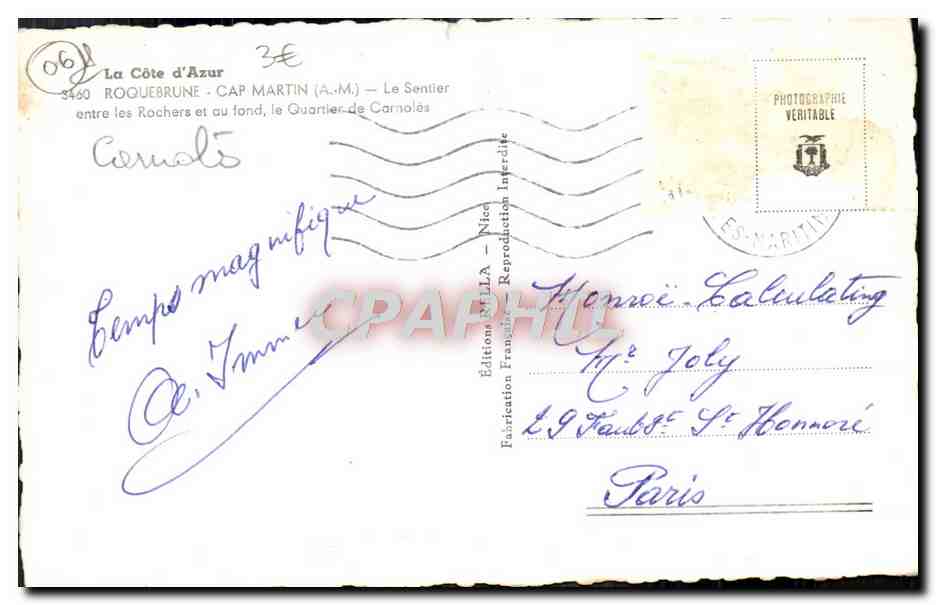 06
3€
La Côte d'Azur
3460 ROQUEBRUNE - CAP MARTIN (A.-M.) — Le Sentier
entre les Rochers et au fond, le Quartier de Carnolès
Carnolès
Temps magnifique
PHOTOGRAPHIE
VÉRITABLE
ES-MARITIM
Editions RELLA — Nice
Fabrication Française Reproduction Interdite
CPAPHIL
Monroë-Calculating
Mr Joly
29 Faubg St Honnoré
Paris